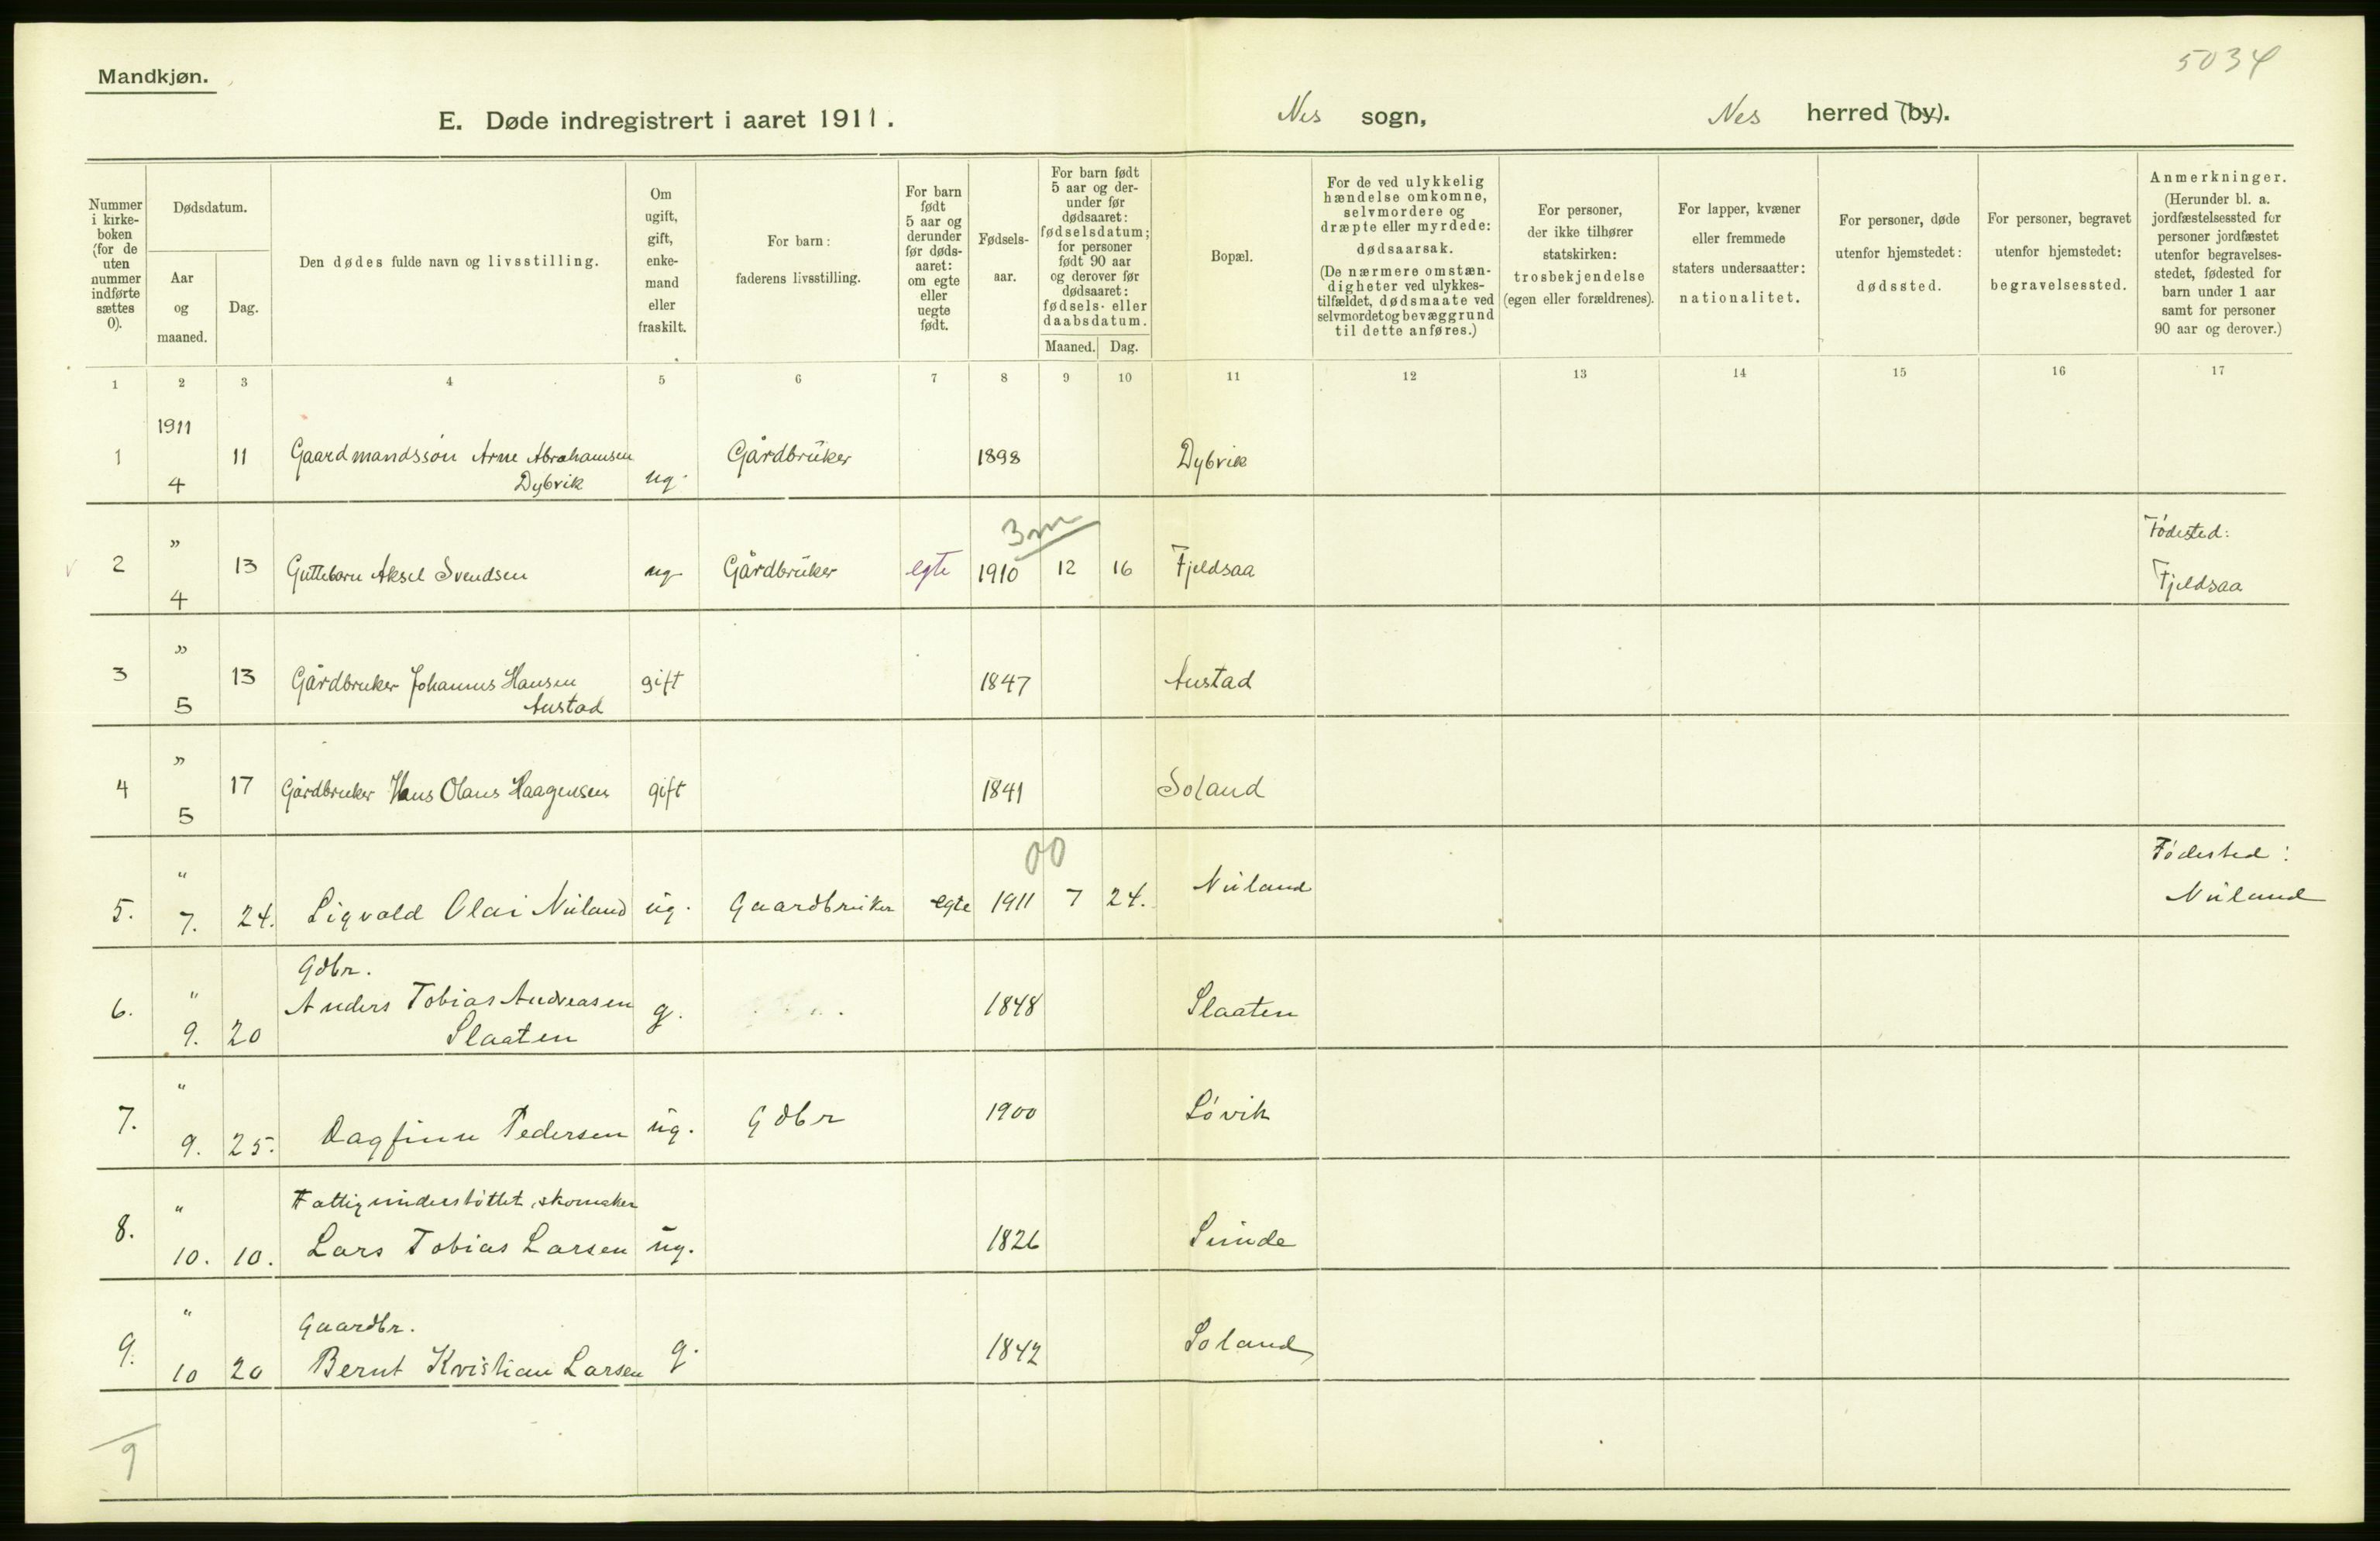 5034
Mandkjøn.
E. Døde indregistrert i aaret 1911.
Nes sogn, Nes herred (by).
Nummer i kirke-boken (for de uten nummer indførte sættes 0).
Dødsdatum.
Aar og maaned.
Dag.
Den dødes fulde navn og livsstilling.
Om ugift, gift, enke-mand eller fraskilt.
For barn: faderens livsstilling.
For barn født 5 aar og derunder før døds-aaret: om egte eller uegte født.
Fødsels-aar.
For barn født 5 aar og der-under før dødsaaret: fødselsdatum; for personer født 90 aar og derover før dødsaaret: fødsels- eller daabsdatum.
Maaned. Dag.
Bopæl.
For de ved ulykkelig hændelse omkomne, selvmordere og dræpte eller myrdede: dødsaarsak. (De nærmere omstæn-digheter ved ulykkes-tilfældet, dødsmaate ved selvmordet og bevæggrund til dette anføres.)
For personer, der ikke tilhører statskirken: trosbekjendelse (egen eller forældrenes).
For lapper, kvæner eller fremmede staters undersaatter: nationalitet.
For personer, døde utenfor hjemstedet: dødssted.
For personer, begravet utenfor hjemstedet: begravelsessted.
Anmerkninger. (Herunder bl. a. jordfæstelsessted for personer jordfæstet utenfor begravelses-stedet, fødested for barn under 1 aar samt for personer 90 aar og derover.)
1 2 3 4 5 6 7 8 9 10 11 12 13 14 15 16 17
1911
1 4 11 Gaardmandssön Arne Abrahamsen Dybvik ug. Gårdbrüker 1898 Dybvik
3 m
2 " 4 13 Guttebarn Aksel Svendsen ug Gårdbrüker egte 1910 12 16 Fjeldsaa Födested: Fjeldsaa
3 " 5 13 Gårdbruker Johannes Hansen Austad gift 1847 Austad
4 " 5 17 Gårdbruker Hans Olaus Haagensen gift 1841 Soland
00
5. " 7. 24. Sigvald Olai Nüland üg. Gaardbrüker egte 1911 7 24. Nüland Födested: Nüland
6. " 9. 20 Gdbr. Anders Tobias Andreasen Slaaten g. 1848 Slaaten
7. " 9. 25. Dagfinn Pedersen üg. Gdbr 1900 Lövik
8. " 10. 10. Fattigünderstöttet, skomaker Lars Tobias Larsen üg. 1826 Sünde
9. " 10 20 Gaardbr. Bernt Kristian Larsen g. 1842 Soland
9